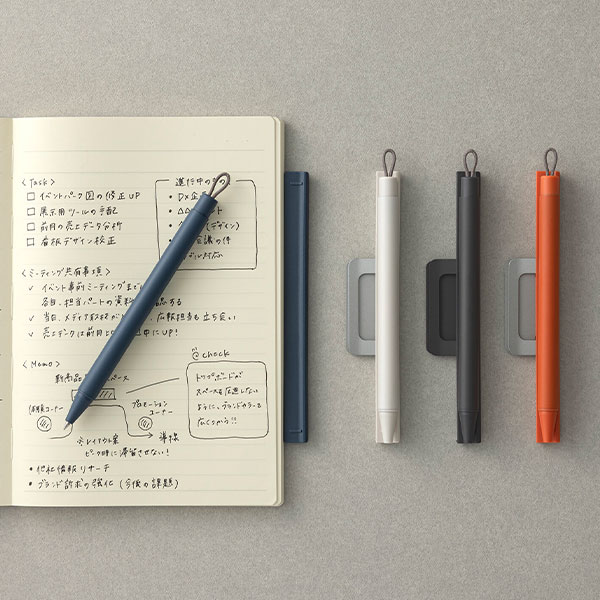 < Task >
□ イベントパーク図の修正UP
□ 展示用ツールの手配
□ 前月の売上データ分析
□ 看板デザイン校正
進行中の
• D×企
• △△ ト
(デザイン)
会議の件
対応
< ミーティング共有事項 >
✓ イベント事前ミーティングまで
各自、担当パートの資料 する
✓ 当日、メディア 広報担当も立ち会い
✓ 売上データは前日 中にUP!
< Memo >
@check
新商品 ペース
体験コーナー
プロモーションコーナー
導線
トップボードが
スペースを圧迫しない
ように、ブランドカラーで
広くつかう!!
※レイアウト案
ピーク時に滞留させない!
• 他社情報リサーチ
• ブランド訴求の強化 (今後の課題)